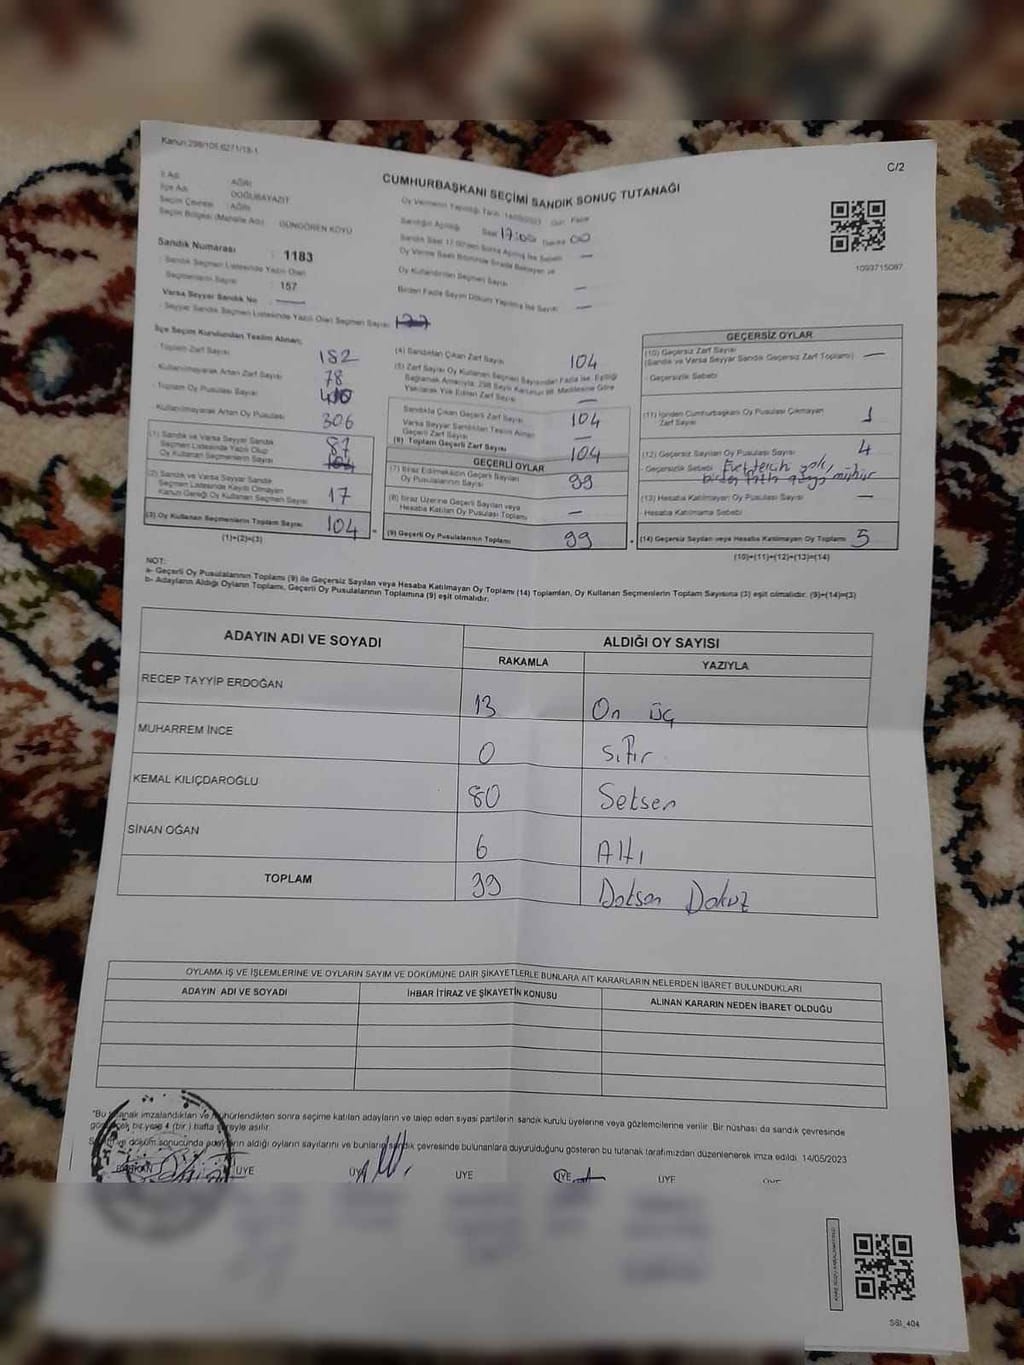 Kanun:298/105,6271/19-1
C/2
CUMHURBAŞKANI SEÇİMİ SANDIK SONUÇ TUTANAĞI
İl Adı : AĞRI
İlçe Adı : DOĞUBAYAZIT
Seçim Çevresi : AĞRI
Seçim Bölgesi (Mahalle Adı) : GÜNGÖREN KÖYÜ
Oy Vermenin Yapıldığı Tarih: 14/05/2023 Gün: Pazar
Sandığın Açıldığı Saat 17:00 Dakika 00
Sandık Saat 17:00'den Sonra Açılmış İse Sebebi
Oy Verme Saati Bitiminde Sırada Bekleyen ve
Oy Kullandırılan Seçmen Sayısı —
Birden Fazla Sayım Döküm Yapılmış İse Sayısı —
1093715087
Sandık Numarası : 1183
Sandık Seçmen Listesinde Yazılı Olan
Seçmenlerin Sayısı : 157
Varsa Seyyar Sandık No —
Seyyar Sandık Seçmen Listesinde Yazılı Olan Seçmen Sayısı
İlçe Seçim Kurulundan Teslim Alınan;
Toplam Zarf Sayısı 182
Kullanılmayarak Artan Zarf Sayısı 78
Toplam Oy Pusulası Sayısı
Kullanılmayarak Artan Oy Pusulası 306
(1) Sandık ve Varsa Seyyar Sandık
Seçmen Listesinde Yazılı Olup
Oy Kullanan Seçmenlerin Sayısı 87
(2) Sandık ve Varsa Seyyar Sandık
Seçmen Listesinde Kayıtlı Olmayan
Kanun Gereği Oy Kullanan Seçmen Sayısı 17
(3) Oy Kullanan Seçmenlerin Toplam Sayısı 104
(1)+(2)=(3)
(4) Sandıktan Çıkan Zarf Sayısı 104
(5) Zarf Sayısı Oy Kullanan Seçmen Sayısından Fazla ise, Eşitliği
Sağlamak Amacıyla, 298 Sayılı Kanunun 98. Maddesine Göre
Yakılarak Yok Edilen Zarf Sayısı —
Sandıkta Çıkan Geçerli Zarf Sayısı 104
Varsa Seyyar Sandıktan Teslim Alınan
Geçerli Zarf Sayısı —
(6) Toplam Geçerli Zarf Sayısı 104
GEÇERLİ OYLAR
(7) İtiraz Edilmeksizin Geçerli Sayılan
Oy Pusulalarının Sayısı 99
(8) İtiraz Üzerine Geçerli Sayılan veya
Hesaba Katılan Oy Pusulası Toplamı —
(9) Geçerli Oy Pusulalarının Toplamı 99
GEÇERSİZ OYLAR
(10) Geçersiz Zarf Sayısı
(Sandık ve Varsa Seyyar Sandık Geçersiz Zarf Toplamı) —
- Geçersizlik Sebebi
(11) İçinden Cumhurbaşkanı Oy Pusulası Çıkmayan
Zarf Sayısı 1
(12) Geçersiz Sayılan Oy Pusulası Sayısı 4
- Geçersizlik Sebebi Evet tercih yok,
birden fazla mühür
(13) Hesaba Katılmayan Oy Pusulası Sayısı —
- Hesaba Katılmama Sebebi
(14) Geçersiz Sayılan veya Hesaba Katılmayan Oy Toplamı 5
(10)+(11)+(12)+(13)=(14)
NOT:
a- Geçerli Oy Pusulalarının Toplamı (9) ile Geçersiz Sayılan veya Hesaba Katılmayan Oy Toplamı (14) Toplamları, Oy Kullanan Seçmenlerin Toplam Sayısına (3) eşit olmalıdır. (9)+(14)=(3)
b- Adayların Aldığı Oyların Toplamı, Geçerli Oy Pusulalarının Toplamına (9) eşit olmalıdır.
ADAYIN ADI VE SOYADI ALDIĞI OY SAYISI
RAKAMLA YAZIYLA
RECEP TAYYİP ERDOĞAN 13 On üç
MUHARREM İNCE 0 Sıfır
KEMAL KILIÇDAROĞLU 80 Seksen
SİNAN OĞAN 6 Altı
TOPLAM 99 Doksan Dokuz
OYLAMA İŞ VE İŞLEMLERİNE VE OYLARIN SAYIM VE DÖKÜMÜNE DAİR ŞİKAYETLERLE BUNLARA AİT KARARLARIN NELERDEN İBARET BULUNDUKLARI
ADAYIN ADI VE SOYADI İHBAR İTİRAZ VE ŞİKAYETİN KONUSU ALINAN KARARIN NEDEN İBARET OLDUĞU
"Bu tutanak imzalandıktan ve mühürlendikten sonra seçime katılan adayların ve talep eden siyasi partilerin sandık kurulu üyelerine veya gözlemcilerine verilir. Bir nüshası da sandık çevresinde
bir yere (bir) hafta süreyle asılır.
döküm sonucunda adayların aldığı oyların sayılarını ve bunların sandık çevresinde bulunanlara duyurulduğunu gösteren bu tutanak tarafımızdan düzenlenerek imza edildi. 14/05/2023
BAŞKAN ÜYE ÜYE ÜYE ÜYE ÜYE ÜYE
SSI_404